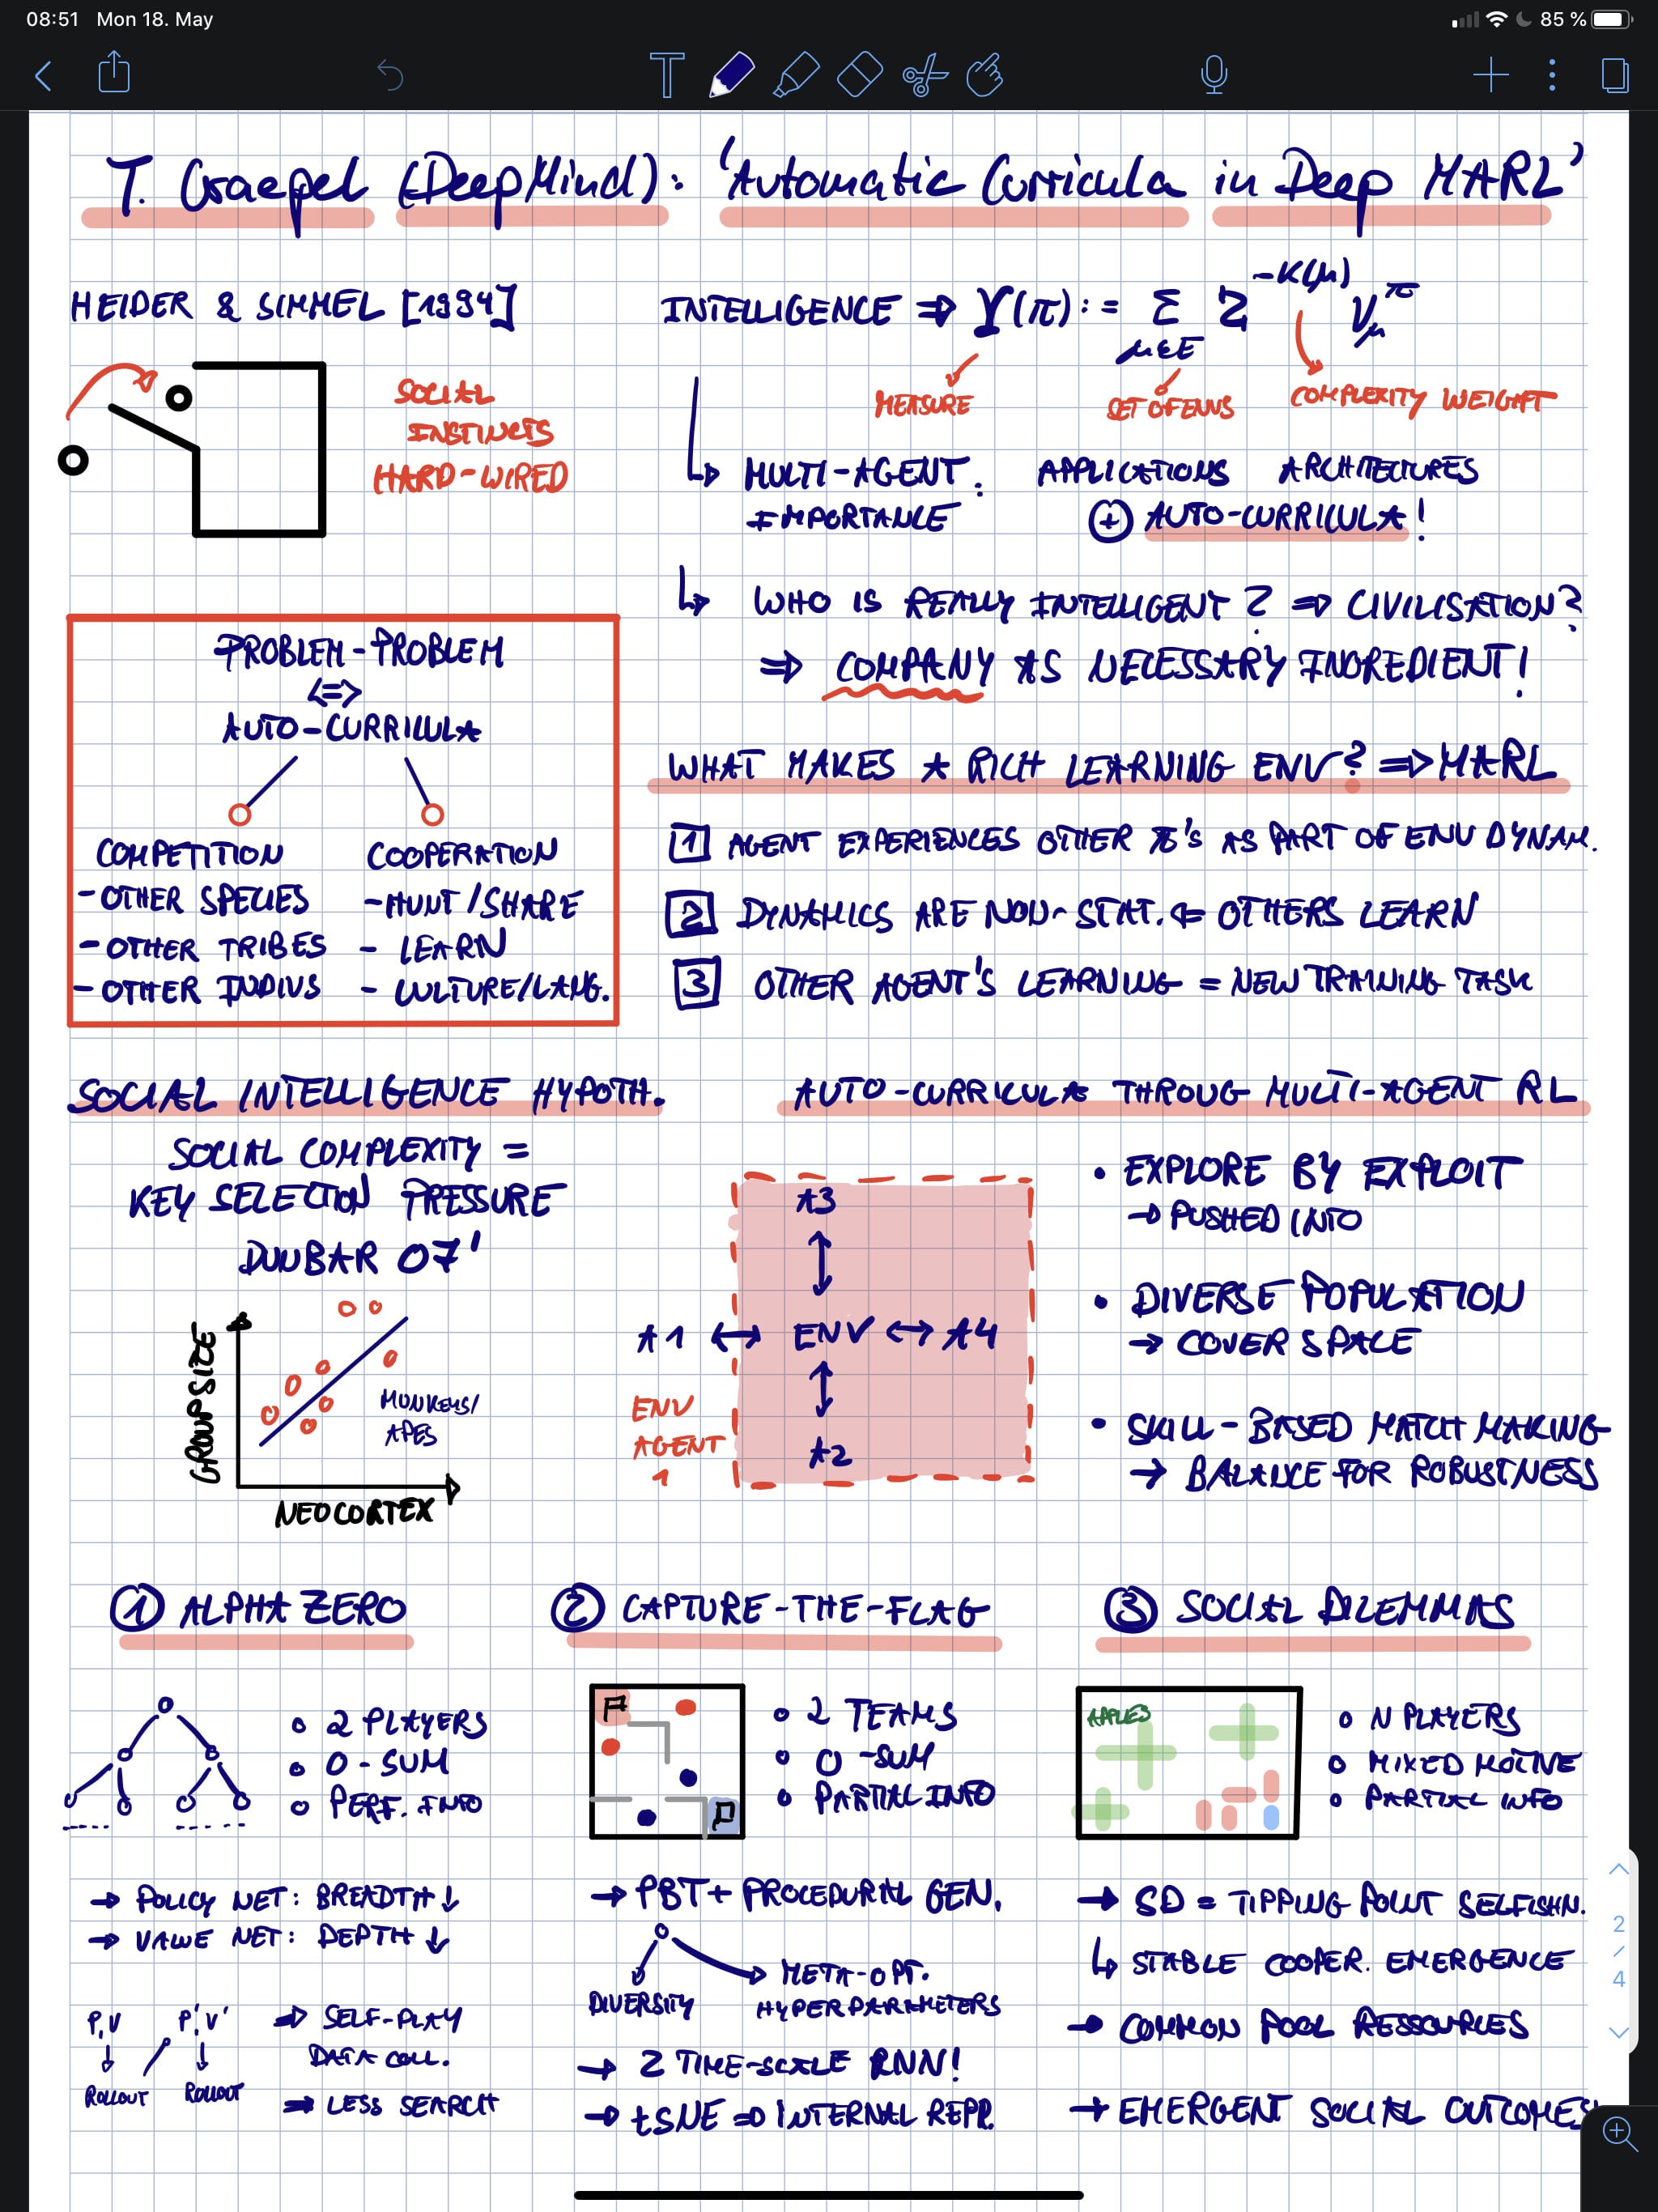 08:51 Mon 18. May
85 %
T. Graepel (DeepMind): 'Automatic Curricula in Deep MARL'
HEIDER & SIMMEL [1994]
SOCIAL
INSTINCTS
HARD-WIRED
INTELLIGENCE ⇒ Υ(π) := Σ 2^-K(μ) V_μ^π
μ∈E
MEASURE
SET OF ENVS
COMPLEXITY WEIGHT
↳ MULTI-AGENT: APPLICATIONS ARCHITECTURES
IMPORTANCE ⊕ AUTO-CURRICULA!
↳ WHO IS REALLY INTELLIGENT? ⇒ CIVILISATION?
⇒ COMPANY AS NECESSARY INGREDIENT!
PROBLEM-PROBLEM
<=>
AUTO-CURRICULA
COMPETITION
- OTHER SPECIES
- OTHER TRIBES
- OTHER INDIVS
COOPERATION
- HUNT/SHARE
- LEARN
- CULTURE/LANG.
WHAT MAKES A RICH LEARNING ENV? ⇒ MARL
1 AGENT EXPERIENCES OTHER π's AS PART OF ENV DYNAM.
2 DYNAMICS ARE NON-STAT. ⇐ OTHERS LEARN
3 OTHER AGENT'S LEARNING = NEW TRAINING TASK
SOCIAL INTELLIGENCE HYPOTH.
SOCIAL COMPLEXITY =
KEY SELECTION PRESSURE
DUNBAR 07'
GROUPSIZE
MONKEYS/
APES
NEOCORTEX
AUTO-CURRICULA THROUG MULTI-AGENT RL
A3
A1 ↔ ENV ↔ A4
A2
ENV
AGENT
1
• EXPLORE BY EXPLOIT
→ PUSHED INTO
• DIVERSE POPULATION
→ COVER SPACE
• SKILL-BASED MATCH MAKING
→ BALANCE FOR ROBUSTNESS
① ALPHA ZERO
○ 2 PLAYERS
○ 0-SUM
○ PERF. INFO
→ POLICY NET: BREADTH ↓
→ VALUE NET: DEPTH ↓
P,V P',V'
ROLLOUT ROLLOUT
⇒ SELF-PLAY
DATA COLL.
⇒ LESS SEARCH
② CAPTURE-THE-FLAG
○ 2 TEAMS
○ 0-SUM
○ PARTIAL INFO
→ PBT + PROCEDURAL GEN.
DIVERSITY
META-OPT.
HYPERPARAMETERS
→ 2 TIME-SCALE RNN!
→ tSNE ⇒ INTERNAL REPR.
③ SOCIAL DILEMMAS
APPLES
○ N PLAYERS
○ MIXED MOTIVE
○ PARTIAL INFO
→ SD = TIPPING POINT SELFISHN.
↳ STABLE COOPER. EMERGENCE
→ COMMON POOL RESSOURCES
→ EMERGENT SOCIAL OUTCOMES
2
/
4